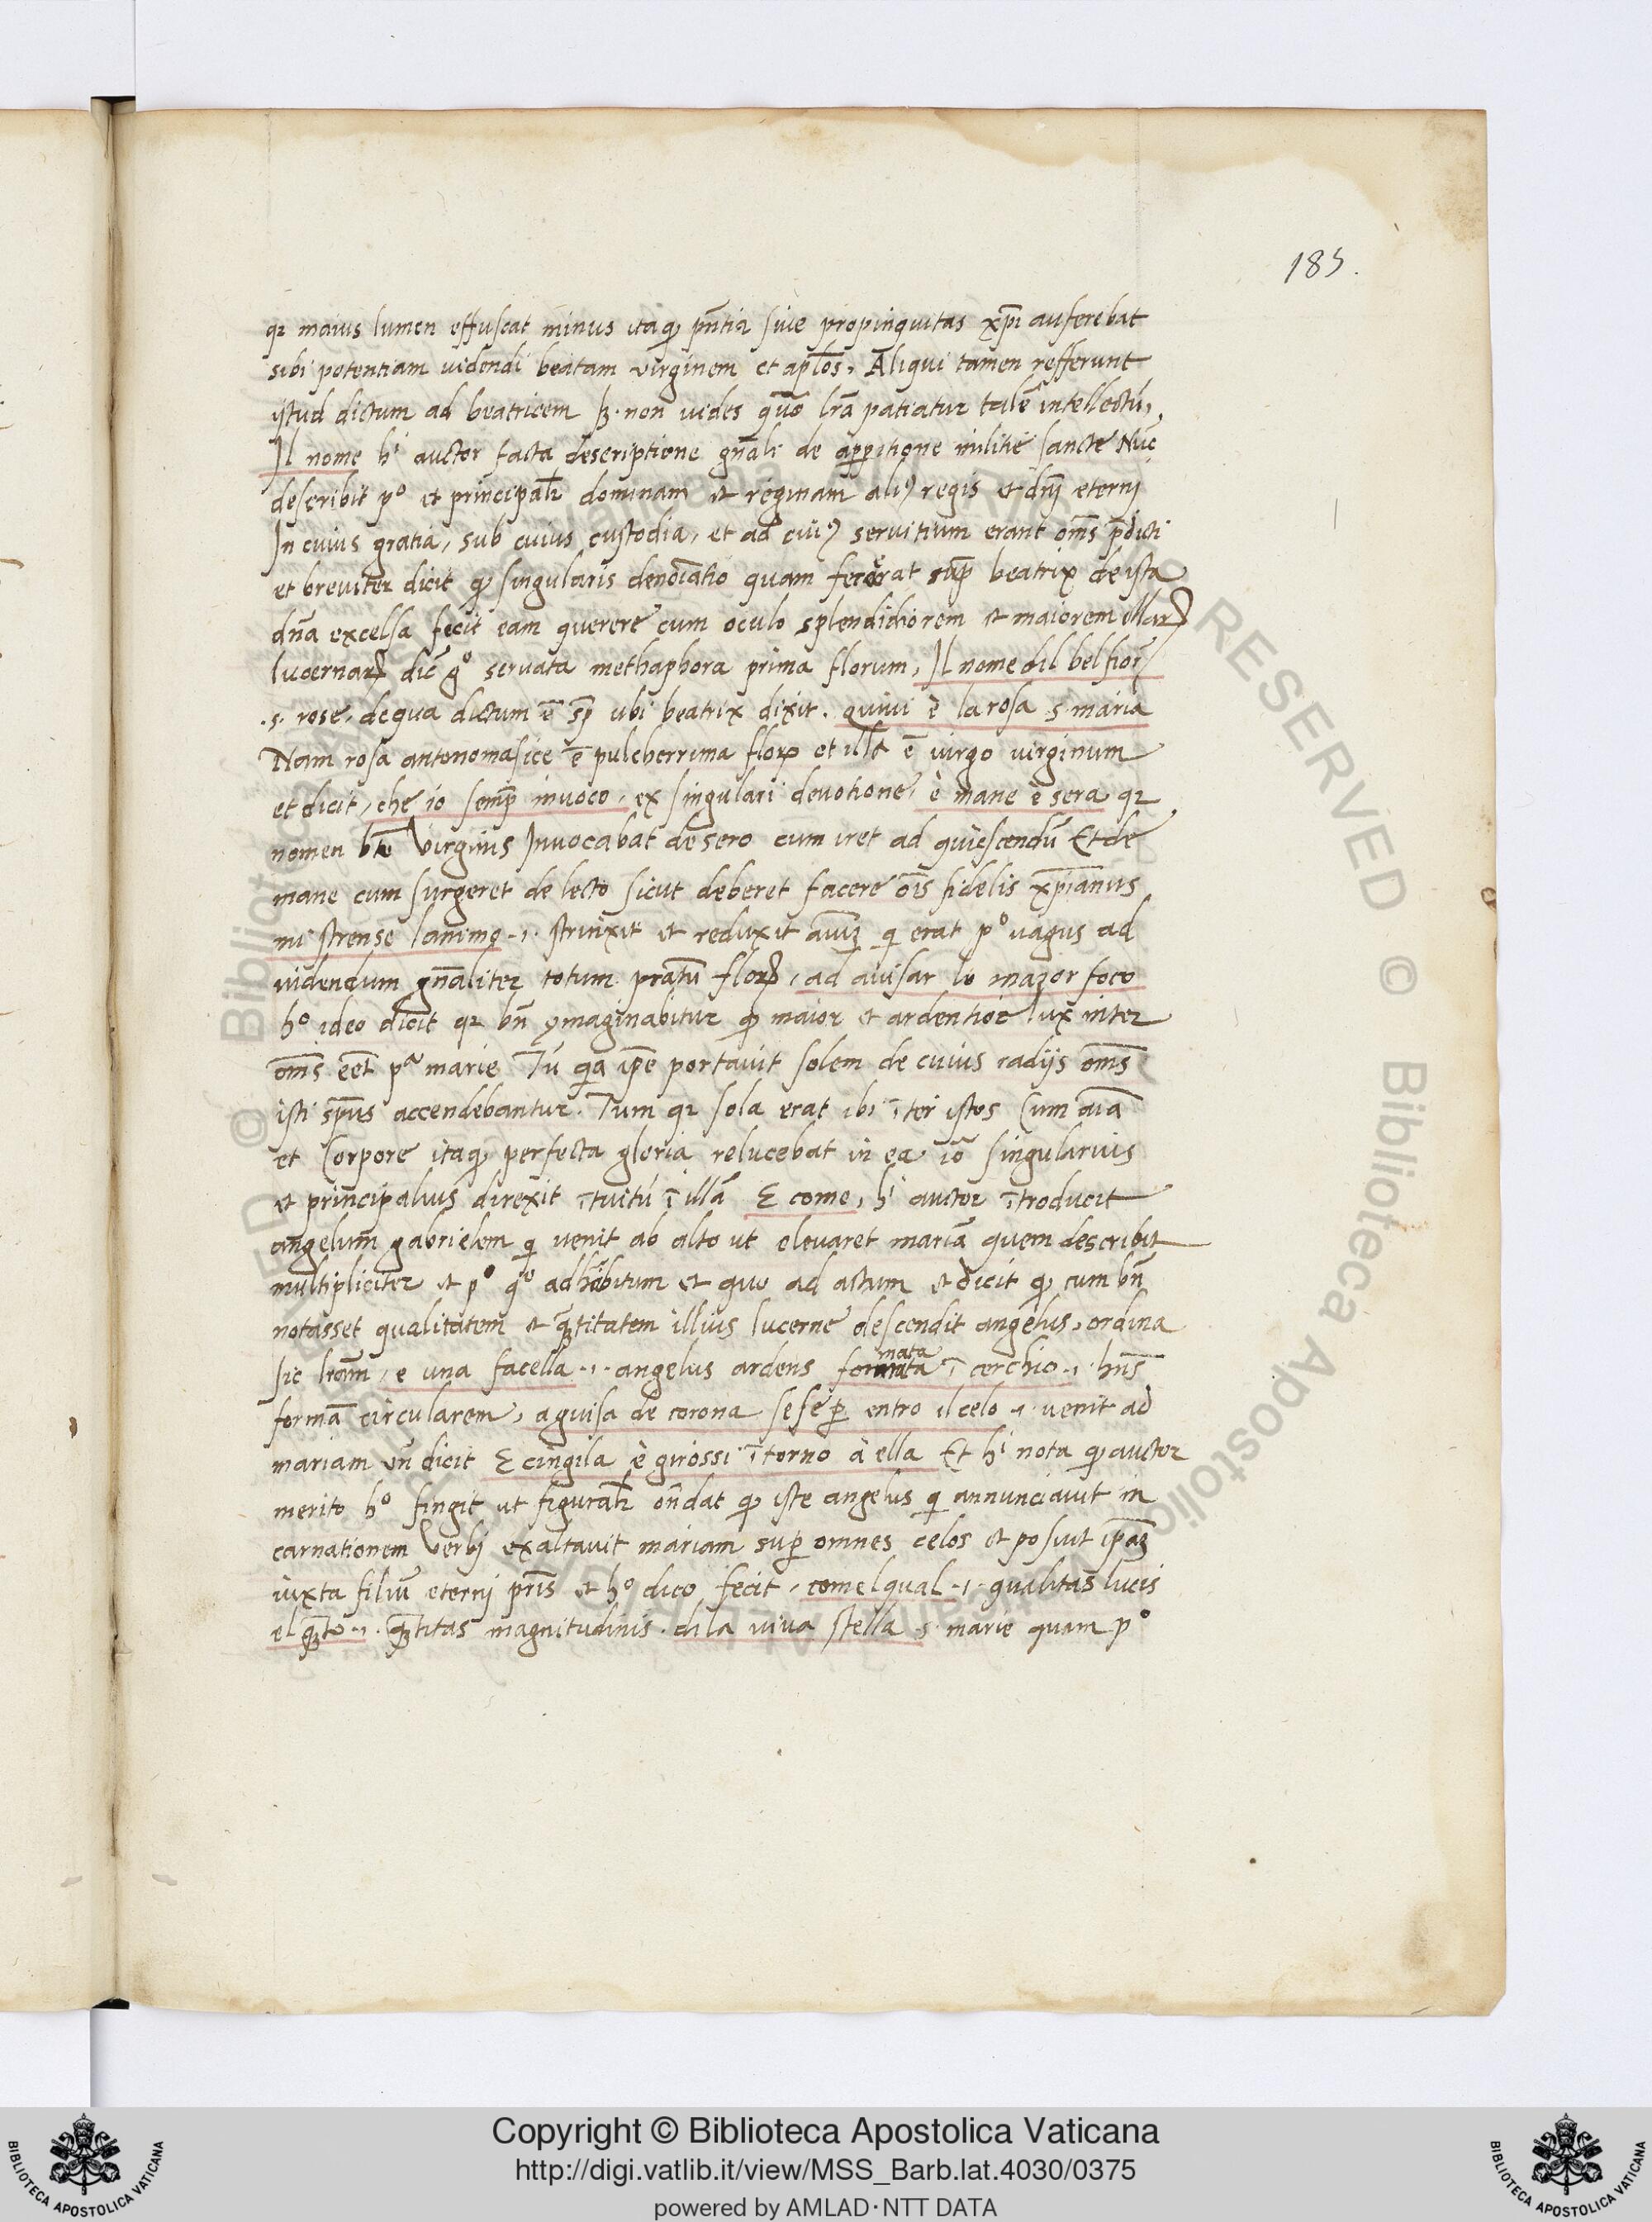 185.
qr maius lumen effuscat minus itaq̨ pn̄tia siue propinquitas xp̄i auferebat
sibi potentiam uidendi beatam virginem et ap̄los, Aliqui tamen refferunt
istud dictum ad beatricem ß. non uides quō lr̄a patiatur talē intellectū,
Il nome hⁱ auctor facta descriptione gn̄ali de apparitione militie sancte Nūc
describit pº et principalr̄ dominam et reginam aliꝰ regis et dn̄j eternj
In cuius gratia, sub cuius custodia, et ad cuiꝰ seruitium erant om̄s p̄dicti
et breuiter dicit ꝙ singularis denoīatio quam fecerat sup̄ beatrix de ista
dn̄a excelsa fecit eam querere cum oculo splendidiorem et maiorem illarꝝ
lucernarꝝ dic̄ gº seruata methaphora prima florum, Il nome dil bel fior
.s. rose, de qua dictum ē sp̄ ubi beatrix dixit. quiui è la rosa .s. maria
Nam rosa antonomasice ē pulcherrima florꝝ et illa ē uirgo uirginum
et dicit, che io semp̄ inuoco, ex singulari deuotione, è mane è sera qr
nomen bt̄e Virginis Inuocabat de sero cum iret ad quiescendū Et de
mane cum surgeret de lecto sicut deberet facere oīs fidelis xp̄ianus
mi strense lanimo .i. strinxit et reduxit aīuȝ q̄ erat pº uagus ad
uidendum gn̄aliter totum pratū florꝝ, ad auisar lo mazor foco
hº ideo dicit qr bn̄ ymaginabitur ꝙ maior et ardentior lux inter
om̄s eēt pª marie Tū qa ip̄e portauit solem de cuius radijs om̄s
isti sp̄us accendebantur. Tum qr sola erat ibi īter istos Cum aīa
et Corpore itaq̨ perfecta gloria relucebat in ea iō singularius
et principalius direxit ītuitū ī illā E come, hⁱ auctor ītroducit
angelum gabrielem q̄ uenit ab alto ut eleuaret mariā quem describit
multipliciter et pº qº ad habitum et quo ad actum et dicit ꝙ cum bn̄
notasset qualitatem et qȝtitatem illius lucerne descendit angelus, ordina
sic lr̄am, e una facella .i. angelus ardens formata ī cerchio .i. hn̄s
mata
formā circularem, a guisa de corona sese p̱ entro il celo .i. uenit ad
mariam un̄ dicit E cingila è girossi ītorno à ella Et hⁱ nota ꝙ auctor
merito hº fingit ut figuralr̄ on̄dat ꝙ iste angelus q̄ annunciauit in
carnationem Verbj exaltauit mariam sup̱ omnes celos et posuit ip̄aȝ
iuxta filiū eternj pr̄is et hº dico fecit, come l qual .i. qualitas lucis
el qȝto .i. qȝtitas magnitudinis. di la uiua stella .s. marie quam pº
Copyright © Biblioteca Apostolica Vaticana
http://digi.vatlib.it/view/MSS_Barb.lat.4030/0375
powered by AMLAD·NTT DATA
BIBLIOTECA APOSTOLICA VATICANA
BIBLIOTECA APOSTOLICA VATICANA